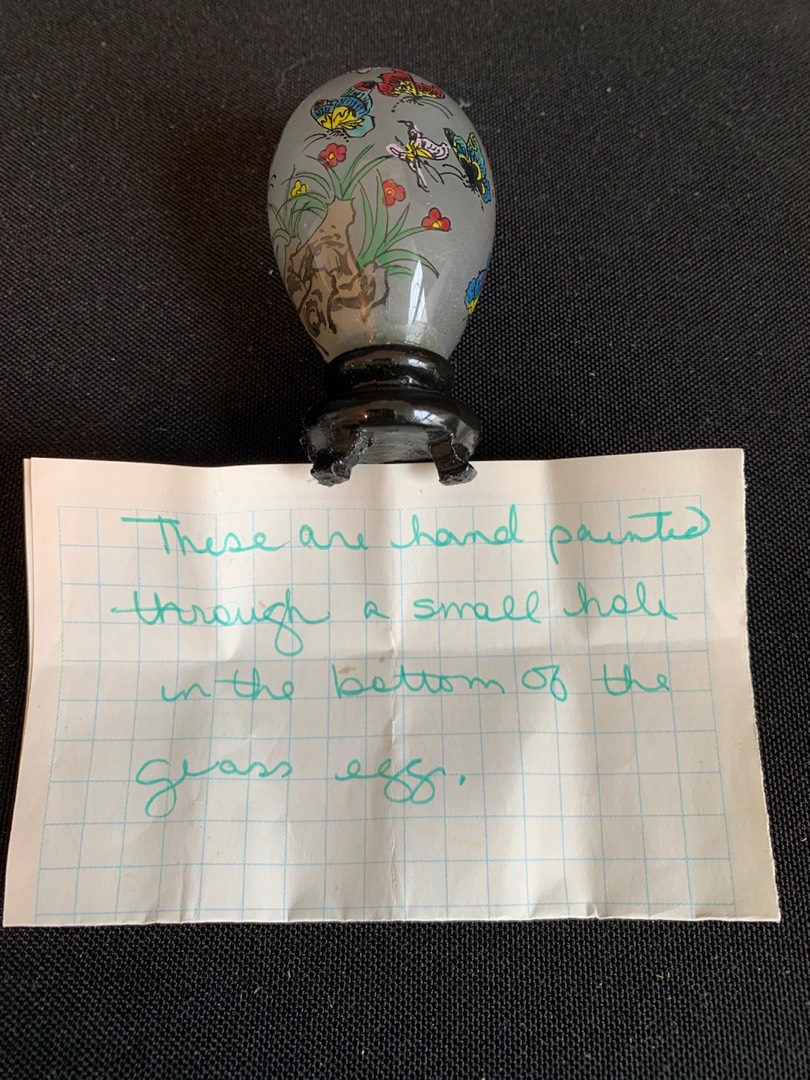 These are hand painted
through a small hole
in the bottom of the
glass egg.